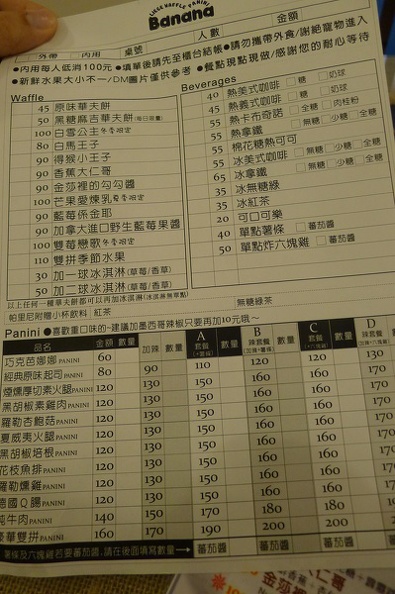 LIEGE WAFFLE PANINI
Banana
外帶 內用 桌號 人數 金額
●內用每人低消100元 ●填單後請先至櫃台結帳 ●請勿攜帶外食/謝絕寵物進入
●新鮮水果大小不一/DM圖片僅供參考 ●餐點現點現做/感謝您的耐心等待
Waffle
45 原味華夫餅
50 黑糖麻吉華夫餅(每日限量)
100 白雪公主 冬季限定
80 白馬王子
90 得猴小王子
90 香蕉大仁哥
90 金莎裡的勾勾醬
100 芒果愛煉乳 夏季限定
90 藍莓係金耶
90 加拿大進口野生藍莓果醬
100 雙莓戀歌 冬季限定
110 雙拼季節水果
30 加一球冰淇淋(草莓/香草)
50 加二球冰淇淋(草莓/香草)
以上任何一種華夫餅都可以再加冰淇淋(冰淇淋無單點)
帕里尼附贈小杯飲料 紅茶 無糖綠茶
Beverages
40 熱美式咖啡 □糖 □奶球
45 熱義式咖啡 □糖 □奶球
55 熱卡布奇諾 □全糖 □肉桂粉
55 熱拿鐵
55 棉花糖熱可可
55 冰美式咖啡 □無糖 □少糖 □全糖
65 冰拿鐵 □無糖 □少糖 □全糖
35 冰無糖綠
35 冰紅茶
20 可口可樂
40 單點薯條 □蕃茄醬
50 單點炸六塊雞 □蕃茄醬
Panini ●喜歡重口味的~建議加墨西哥辣椒只要再加10元哦~
品名 金額 數量 加辣 數量 A 套餐 數量 B 辣套餐 數量 C 套餐 數量 D 辣套餐
巧克芭娜娜 PANINI 60 110 120 120 130
經典原味起司 PANINI 80 90 150 160 160 170
煙燻厚切素火腿 PANINI 120 130 150 160 160 170
黑胡椒素雞肉 PANINI 120 130 150 160 160 170
羅勒杏鮑菇 PANINI 120 130 150 160 160 170
夏威夷火腿 PANINI 120 130 150 160 160 170
黑胡椒培根 PANINI 120 130 150 160 160 170
花枝魚排 PANINI 120 130 150 160 160 170
羅勒燻雞 PANINI 120 130 150 160 160
德國Q腸 PANINI 120 130 150 160 160
牛肉 PANINI 140 150 170 180 180
豪華雙拼 PANINI 160 170 190 200 200
薯條及六塊雞若要蕃茄醬，請在後面填寫數量→ 蕃茄醬 蕃茄醬 蕃茄醬